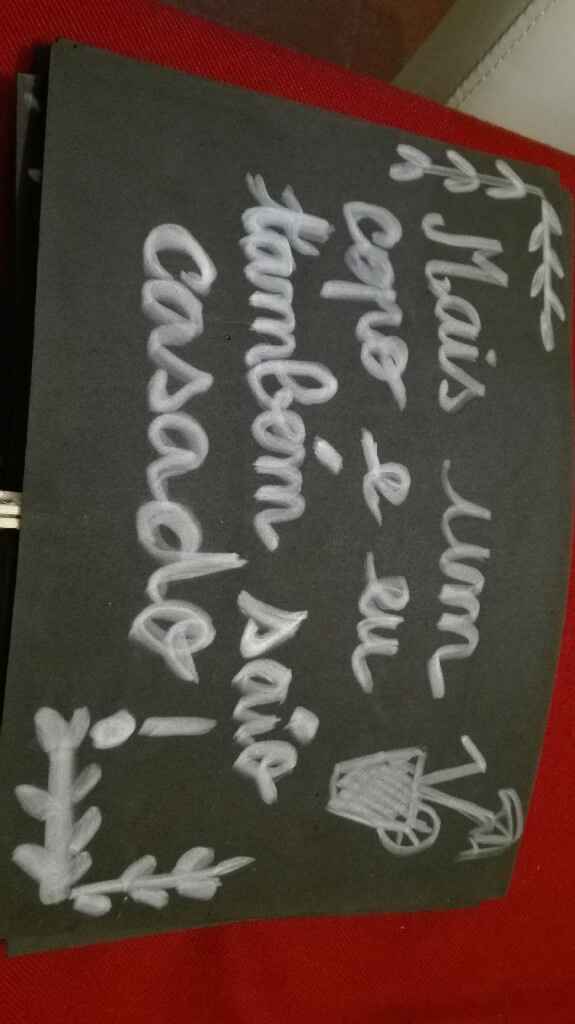 Mais um
copo e eu
também saio
casado!